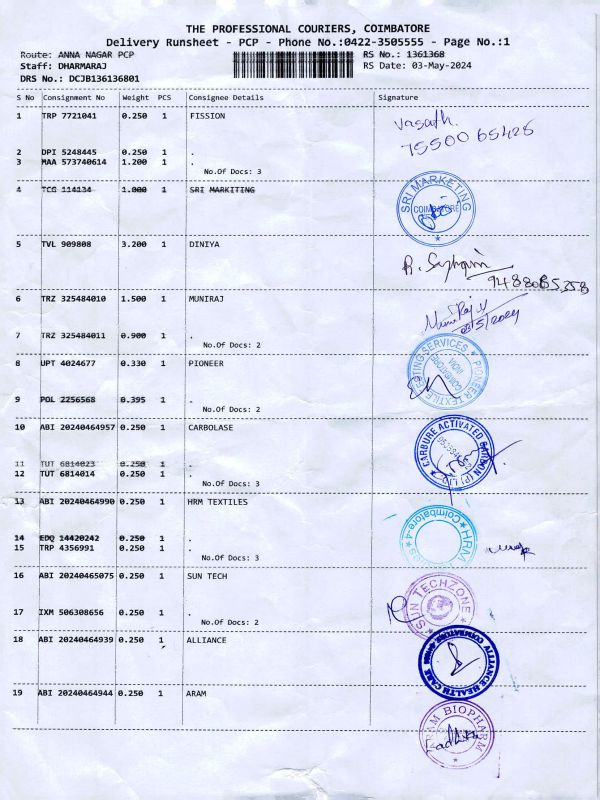 THE PROFESSIONAL COURIERS, COIMBATORE
Delivery Runsheet - PCP - Phone No.:0422-3505555 - Page No.:1
Route: ANNA NAGAR PCP RS No.: 1361368
Staff: DHARMARAJ RS Date: 03-May-2024
DRS No.: DCJB136136801
S No Consignment No Weight PCS Consignee Details Signature
1 TRP 7721041 0.250 1 FISSION
75500 65425
2 DPI 5248445 0.250 1 .
3 MAA 573740614 1.200 1 .
No.Of Docs: 3
4 TCG 114134 1.000 1 SRI MARKITING
SRI MARKETING
COIMBATORE
5 TVL 909808 3.200 1 DINIYA
6 TRZ 325484010 1.500 1 MUNIRAJ
Muni Raj.V
03/5/2024
7 TRZ 325484011 0.900 1 .
No.Of Docs: 2
8 UPT 4024677 0.330 1 PIONEER
PIONEER TEXTILE TESTING SERVICES
COIMBATORE
INDIA
9 POL 2256568 0.395 1 .
No.Of Docs: 2
10 ABI 20240464957 0.250 1 CARBOLASE
CARBURE ACTIVATED CARBON (P) LTD
11 TUT 6814023 0.250 1 .
12 TUT 6814014 0.250 1 .
No.Of Docs: 3
13 ABI 20240464990 0.250 1 HRM TEXTILES
HRM
Coimbatore-4
14 EDQ 14420242 0.250 1 .
15 TRP 4356991 0.250 1 .
No.Of Docs: 3
16 ABI 20240465075 0.250 1 SUN TECH
SUN TECHZONE
17 IXM 506308656 0.250 1 .
No.Of Docs: 2
18 ABI 20240464939 0.250 1 ALLIANCE
ALLIANCE HEALTH CARE
19 ABI 20240464944 0.250 1 ARAM
ARAM BIOPHARM